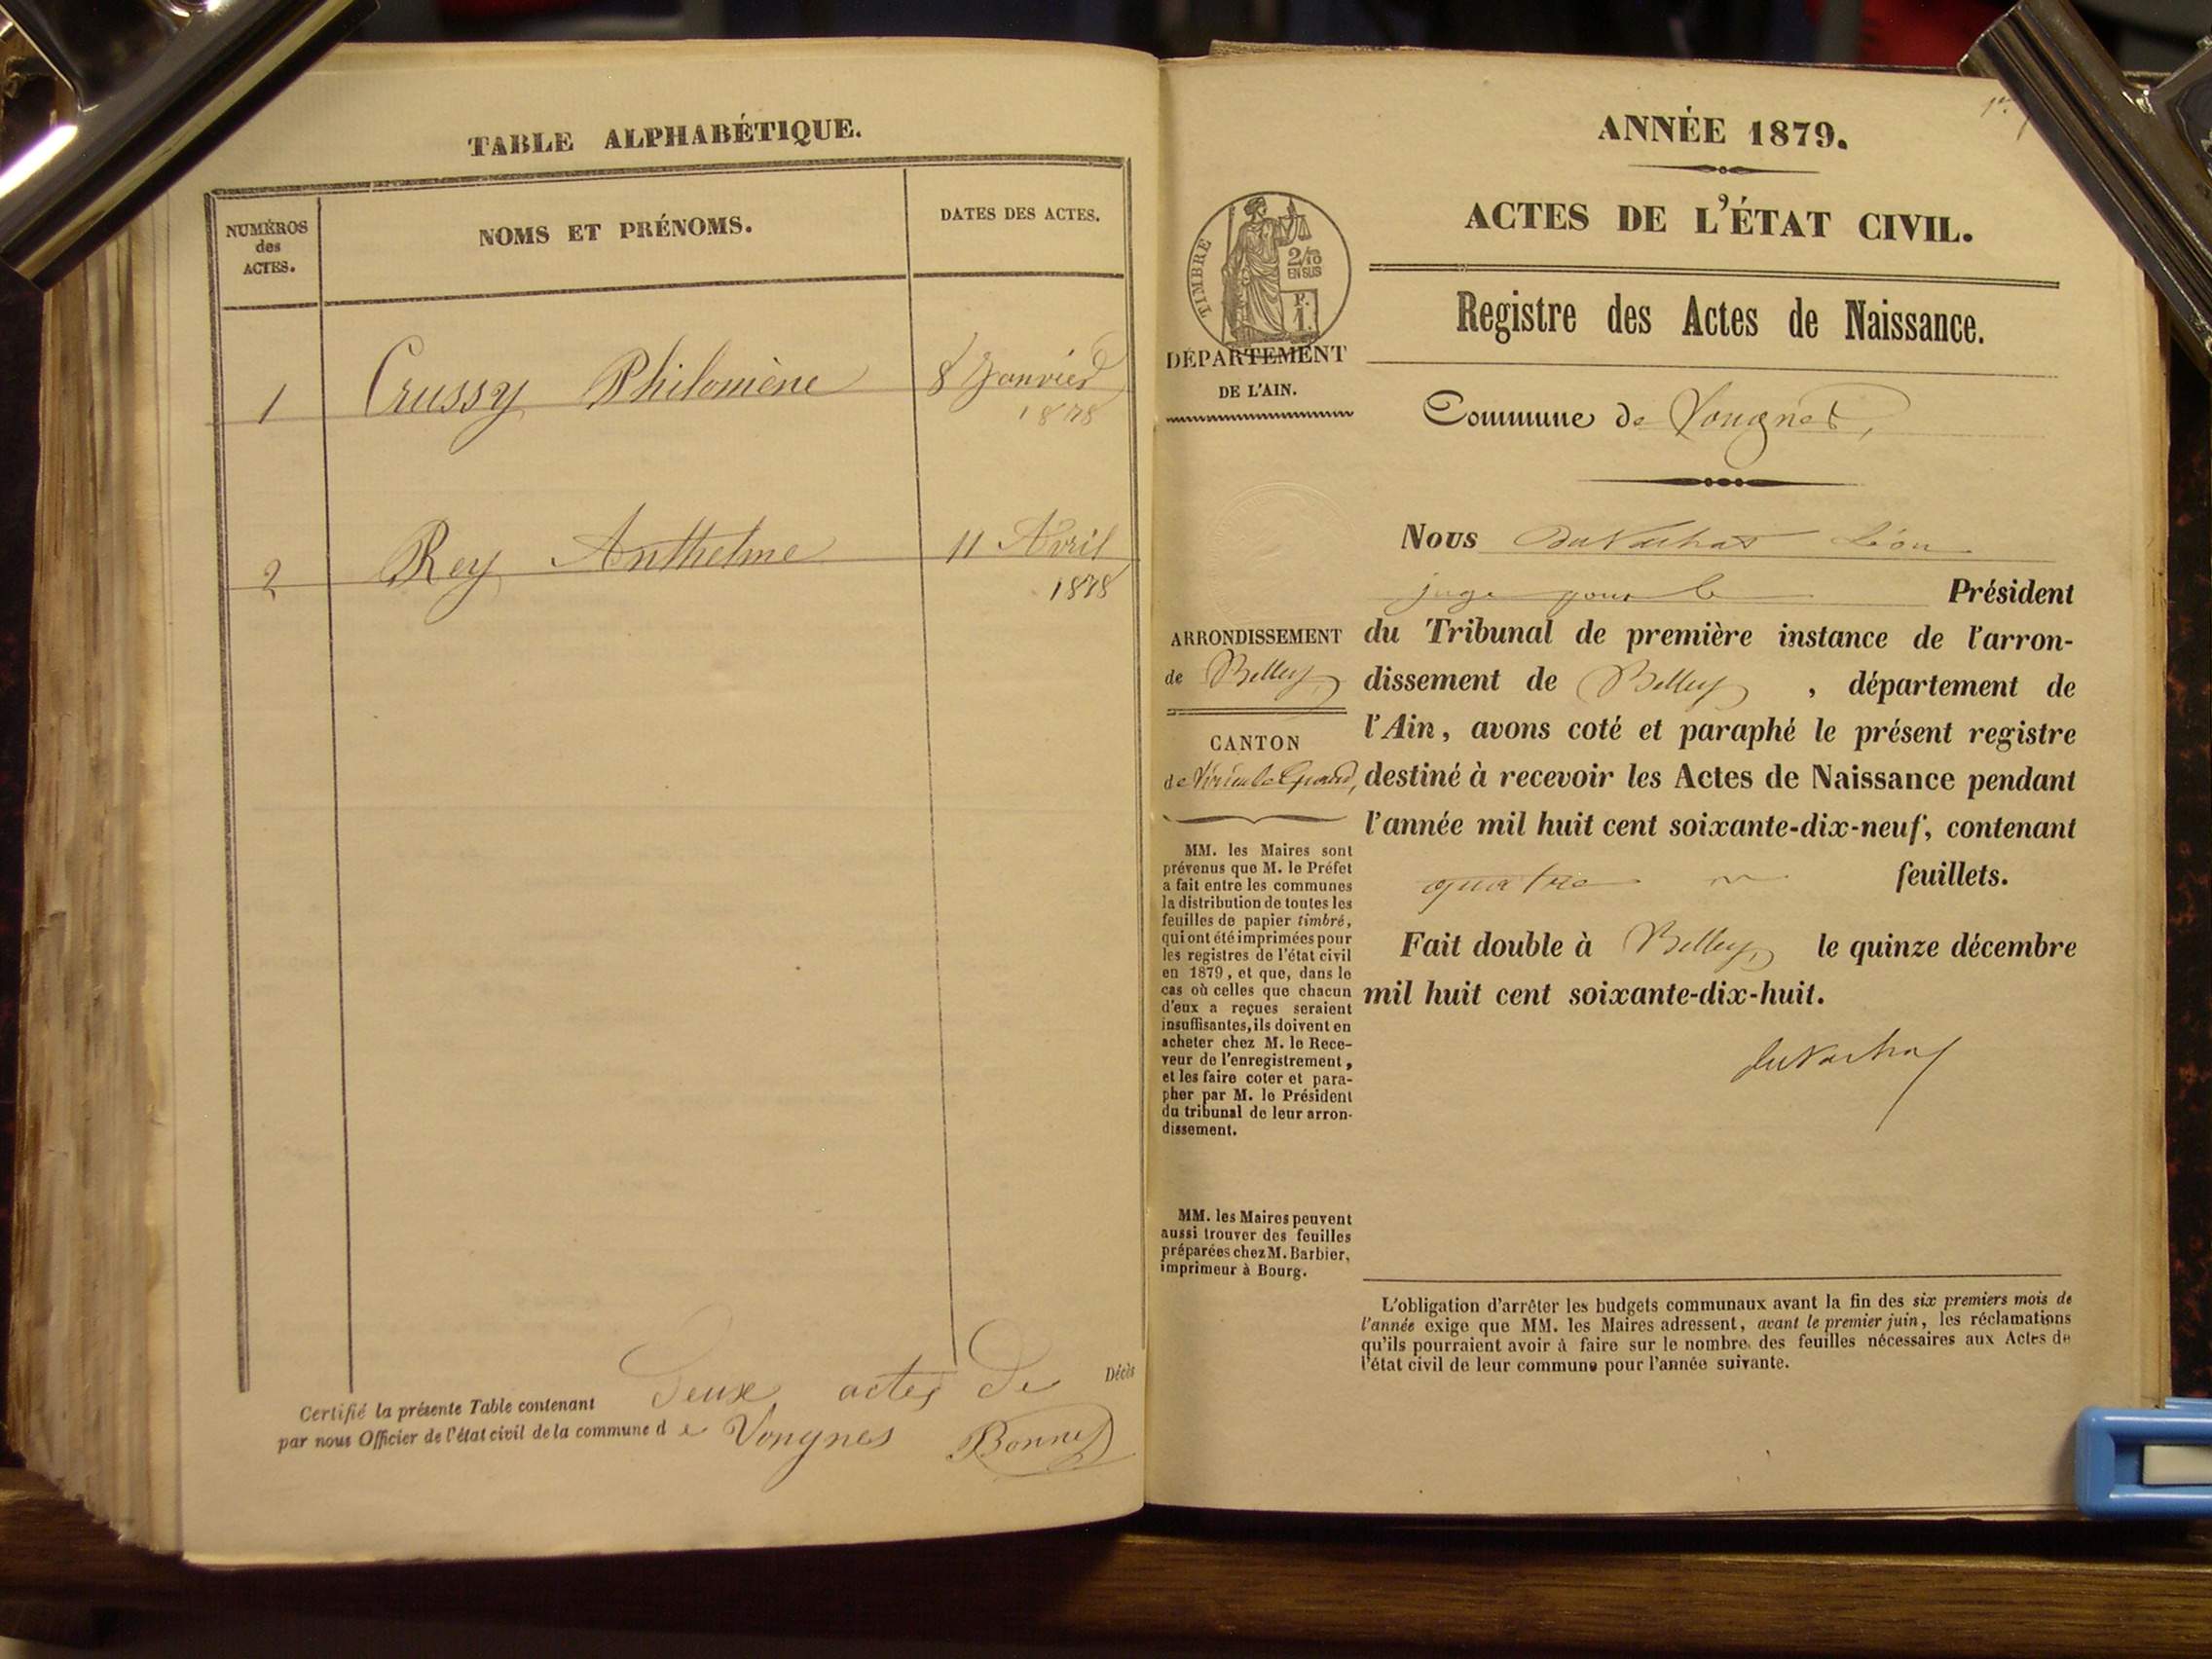 TABLE ALPHABÉTIQUE.
NUMÉROS
des
ACTES.
NOMS ET PRÉNOMS.
DATES DES ACTES.
1 Crussy Philomène 8 Janvier
1878
2 Rey Anthelme 11 Avril
1878
Certifié la présente Table contenant Deux actes de Décès
par nous Officier de l'état civil de la commune de Vongnes Bonnet
1er
ANNÉE 1879.
ACTES DE L'ÉTAT CIVIL.
TIMBRE
2/10
EN SUS
F.
1.
DÉPARTEMENT
DE L'AIN.
Registre des Actes de Naissance.
Commune de Vongnes,
Nous Léon
juge pour le Président
du Tribunal de première instance de l'arron-
dissement de Belley, département de
l'Ain, avons coté et paraphé le présent registre
destiné à recevoir les Actes de Naissance pendant
l'année mil huit cent soixante-dix-neuf, contenant
quatre feuillets.
Fait double à Belley, le quinze décembre
mil huit cent soixante-dix-huit.
ARRONDISSEMENT
de Belley,
CANTON
de Virieu le Grand,
MM. les Maires sont
prévenus que M. le Préfet
a fait entre les communes
la distribution de toutes les
feuilles de papier timbré,
qui ont été imprimées pour
les registres de l'état civil
en 1879, et que, dans le
cas où celles que chacun
d'eux a reçues seraient
insuffisantes, ils doivent en
acheter chez M. le Rece-
veur de l'enregistrement,
et les faire coter et para-
pher par M. le Président
du tribunal de leur arron-
dissement.
MM. les Maires peuvent
aussi trouver des feuilles
préparées chez M. Barbier,
imprimeur à Bourg.
L'obligation d'arrêter les budgets communaux avant la fin des six premiers mois de
l'année exige que MM. les Maires adressent, avant le premier juin, les réclamations
qu'ils pourraient avoir à faire sur le nombre des feuilles nécessaires aux Actes de
l'état civil de leur commune pour l'année suivante.